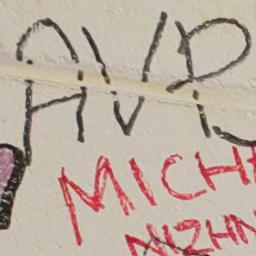 AVR
MICH
NIZHN